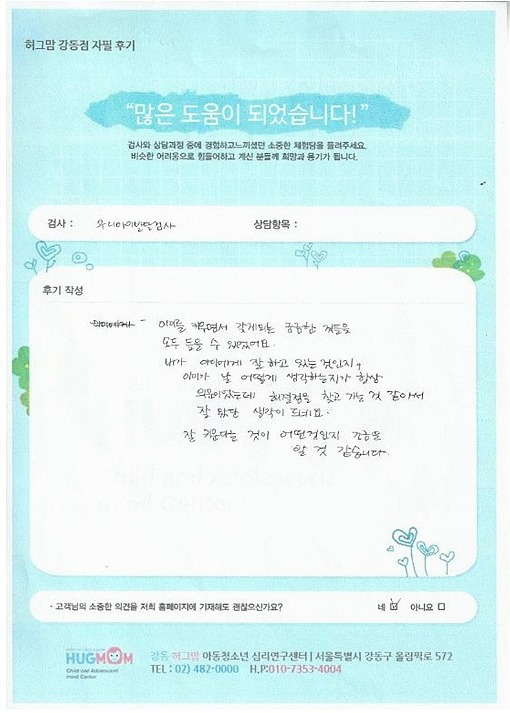 허그맘 강동점 자필 후기
“많은 도움이 되었습니다!”
검사와 상담과정 중에 경험하고느끼셨던 소중한 체험담을 들려주세요.
비슷한 어려움으로 힘들어하고 계신 분들께 희망과 용기가 됩니다.
검사 : 우리아이발달검사 상담항목 :
후기 작성
아이를 키우면서 갖게되는 궁금한 것들을
모두 들을 수 있었어요.
내가 아이에게 잘 하고 있는 것인지,
아이가 날 어떻게 생각하는지가 항상
의문이었는데 해결점을 찾고 가는 것 같아서
잘 왔단 생각이 드네요.
잘 키운다는 것이 어떤것인지 조금은
알 것 같습니다.
- 고객님의 소중한 의견을 저희 홈페이지에 기재해도 괜찮으신가요? 네 ☑ 아니요 □
HUGMOM
Child and Adolescent
mind Center
강동 허그맘 아동청소년 심리연구센터 | 서울특별시 강동구 올림픽로 572
TEL : 02) 482-0000 H.P:010-7353-4004